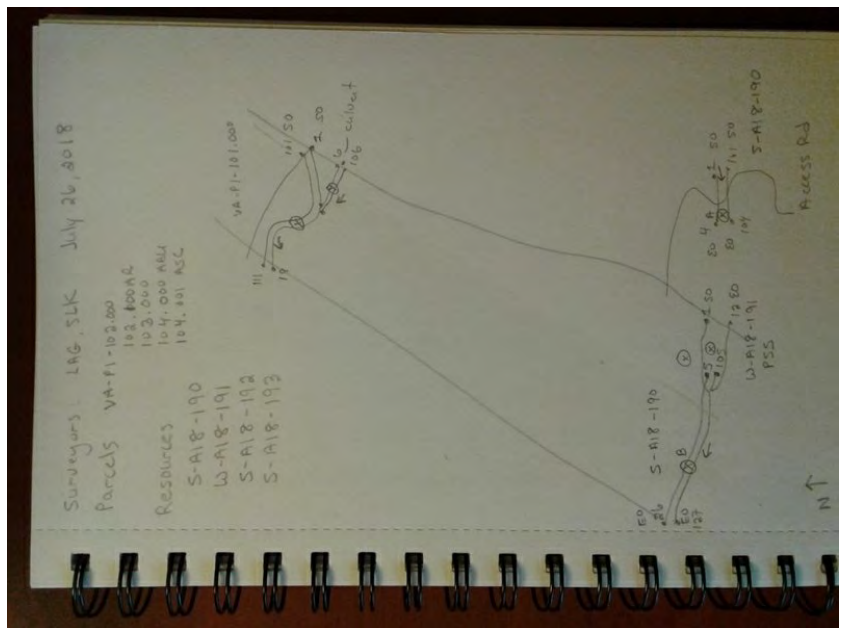 Surveyors: LAG, SLK July 26, 2018
Parcels VA-P1-102.000
102.000AR
103.000
104.000
104.001 ASC
Resources
S-A18-190
W-A18-191
S-A18-192
S-A18-193
VA-P1-101.000
101 SO
1 SO
6
106
culvert
111
18
S-A18-190
EO
26
EO
127
B
5
105
1 SO
12 EO
W-A18-191
PSS
EO 4 A
EO
104
1 SO
101 SO
S-A18-190
Access Rd
N